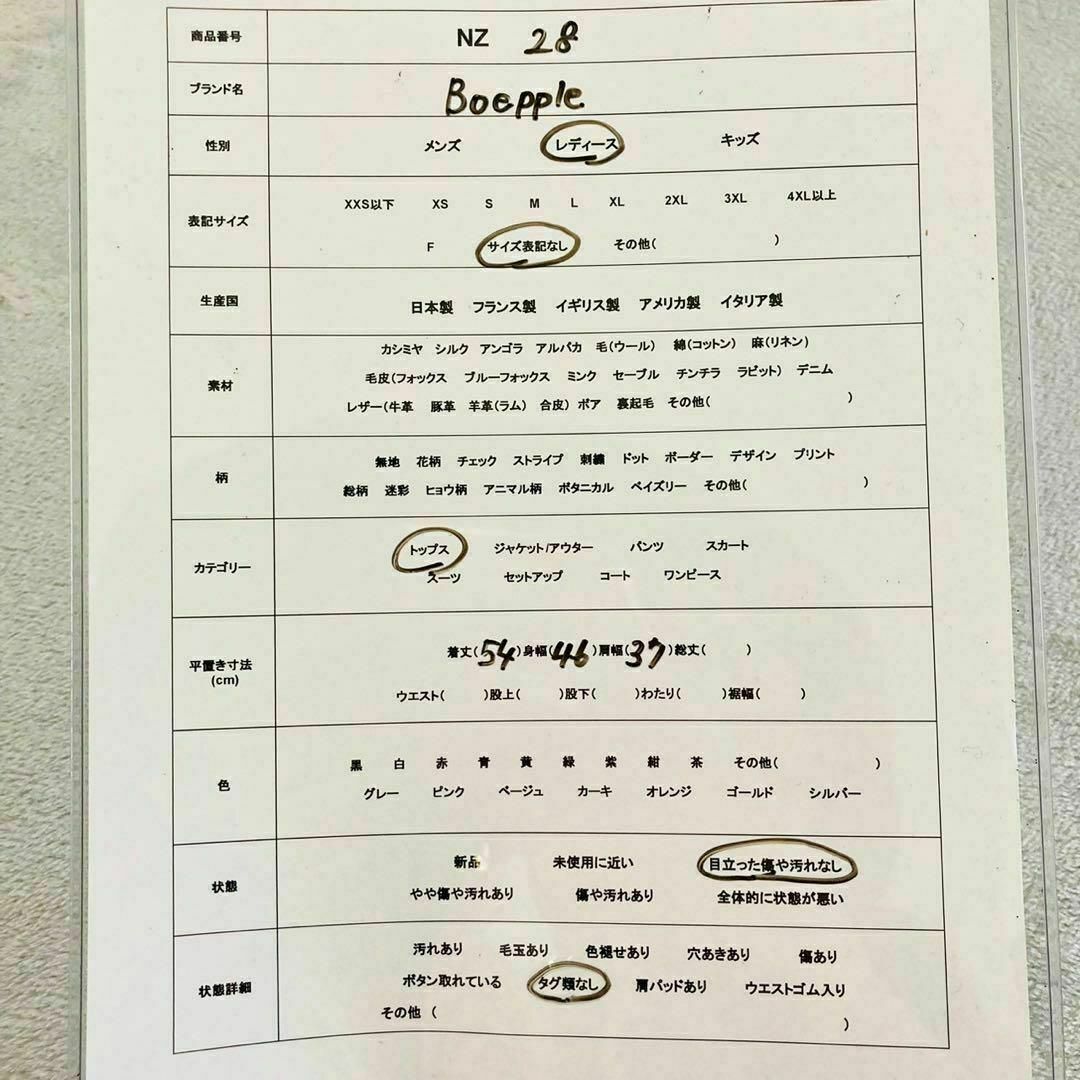 商品番号 NZ 28
ブランド名 Boepple
性別 メンズ レディース キッズ
表記サイズ
XXS以下 XS S M L XL 2XL 3XL 4XL以上
F サイズ表記なし その他( )
生産国 日本製 フランス製 イギリス製 アメリカ製 イタリア製
素材
カシミヤ シルク アンゴラ アルパカ 毛(ウール) 綿(コットン) 麻(リネン)
毛皮(フォックス ブルーフォックス ミンク セーブル チンチラ ラビット) デニム
レザー(牛革 豚革 羊革(ラム) 合皮) ボア 裏起毛 その他( )
柄
無地 花柄 チェック ストライプ 刺繍 ドット ボーダー デザイン プリント
総柄 迷彩 ヒョウ柄 アニマル柄 ボタニカル ペイズリー その他( )
カテゴリー
トップス ジャケット/アウター パンツ スカート
スーツ セットアップ コート ワンピース
平置き寸法
(cm)
着丈(54)身幅(46)肩幅(37)総丈( )
ウエスト( )股上( )股下( )わたり( )裾幅( )
色
黒 白 赤 青 黄 緑 紫 紺 茶 その他( )
グレー ピンク ベージュ カーキ オレンジ ゴールド シルバー
状態
新品 未使用に近い 目立った傷や汚れなし
やや傷や汚れあり 傷や汚れあり 全体的に状態が悪い
状態詳細
汚れあり 毛玉あり 色褪せあり 穴あきあり 傷あり
ボタン取れている タグ類なし 肩パッドあり ウエストゴム入り
その他 ( )